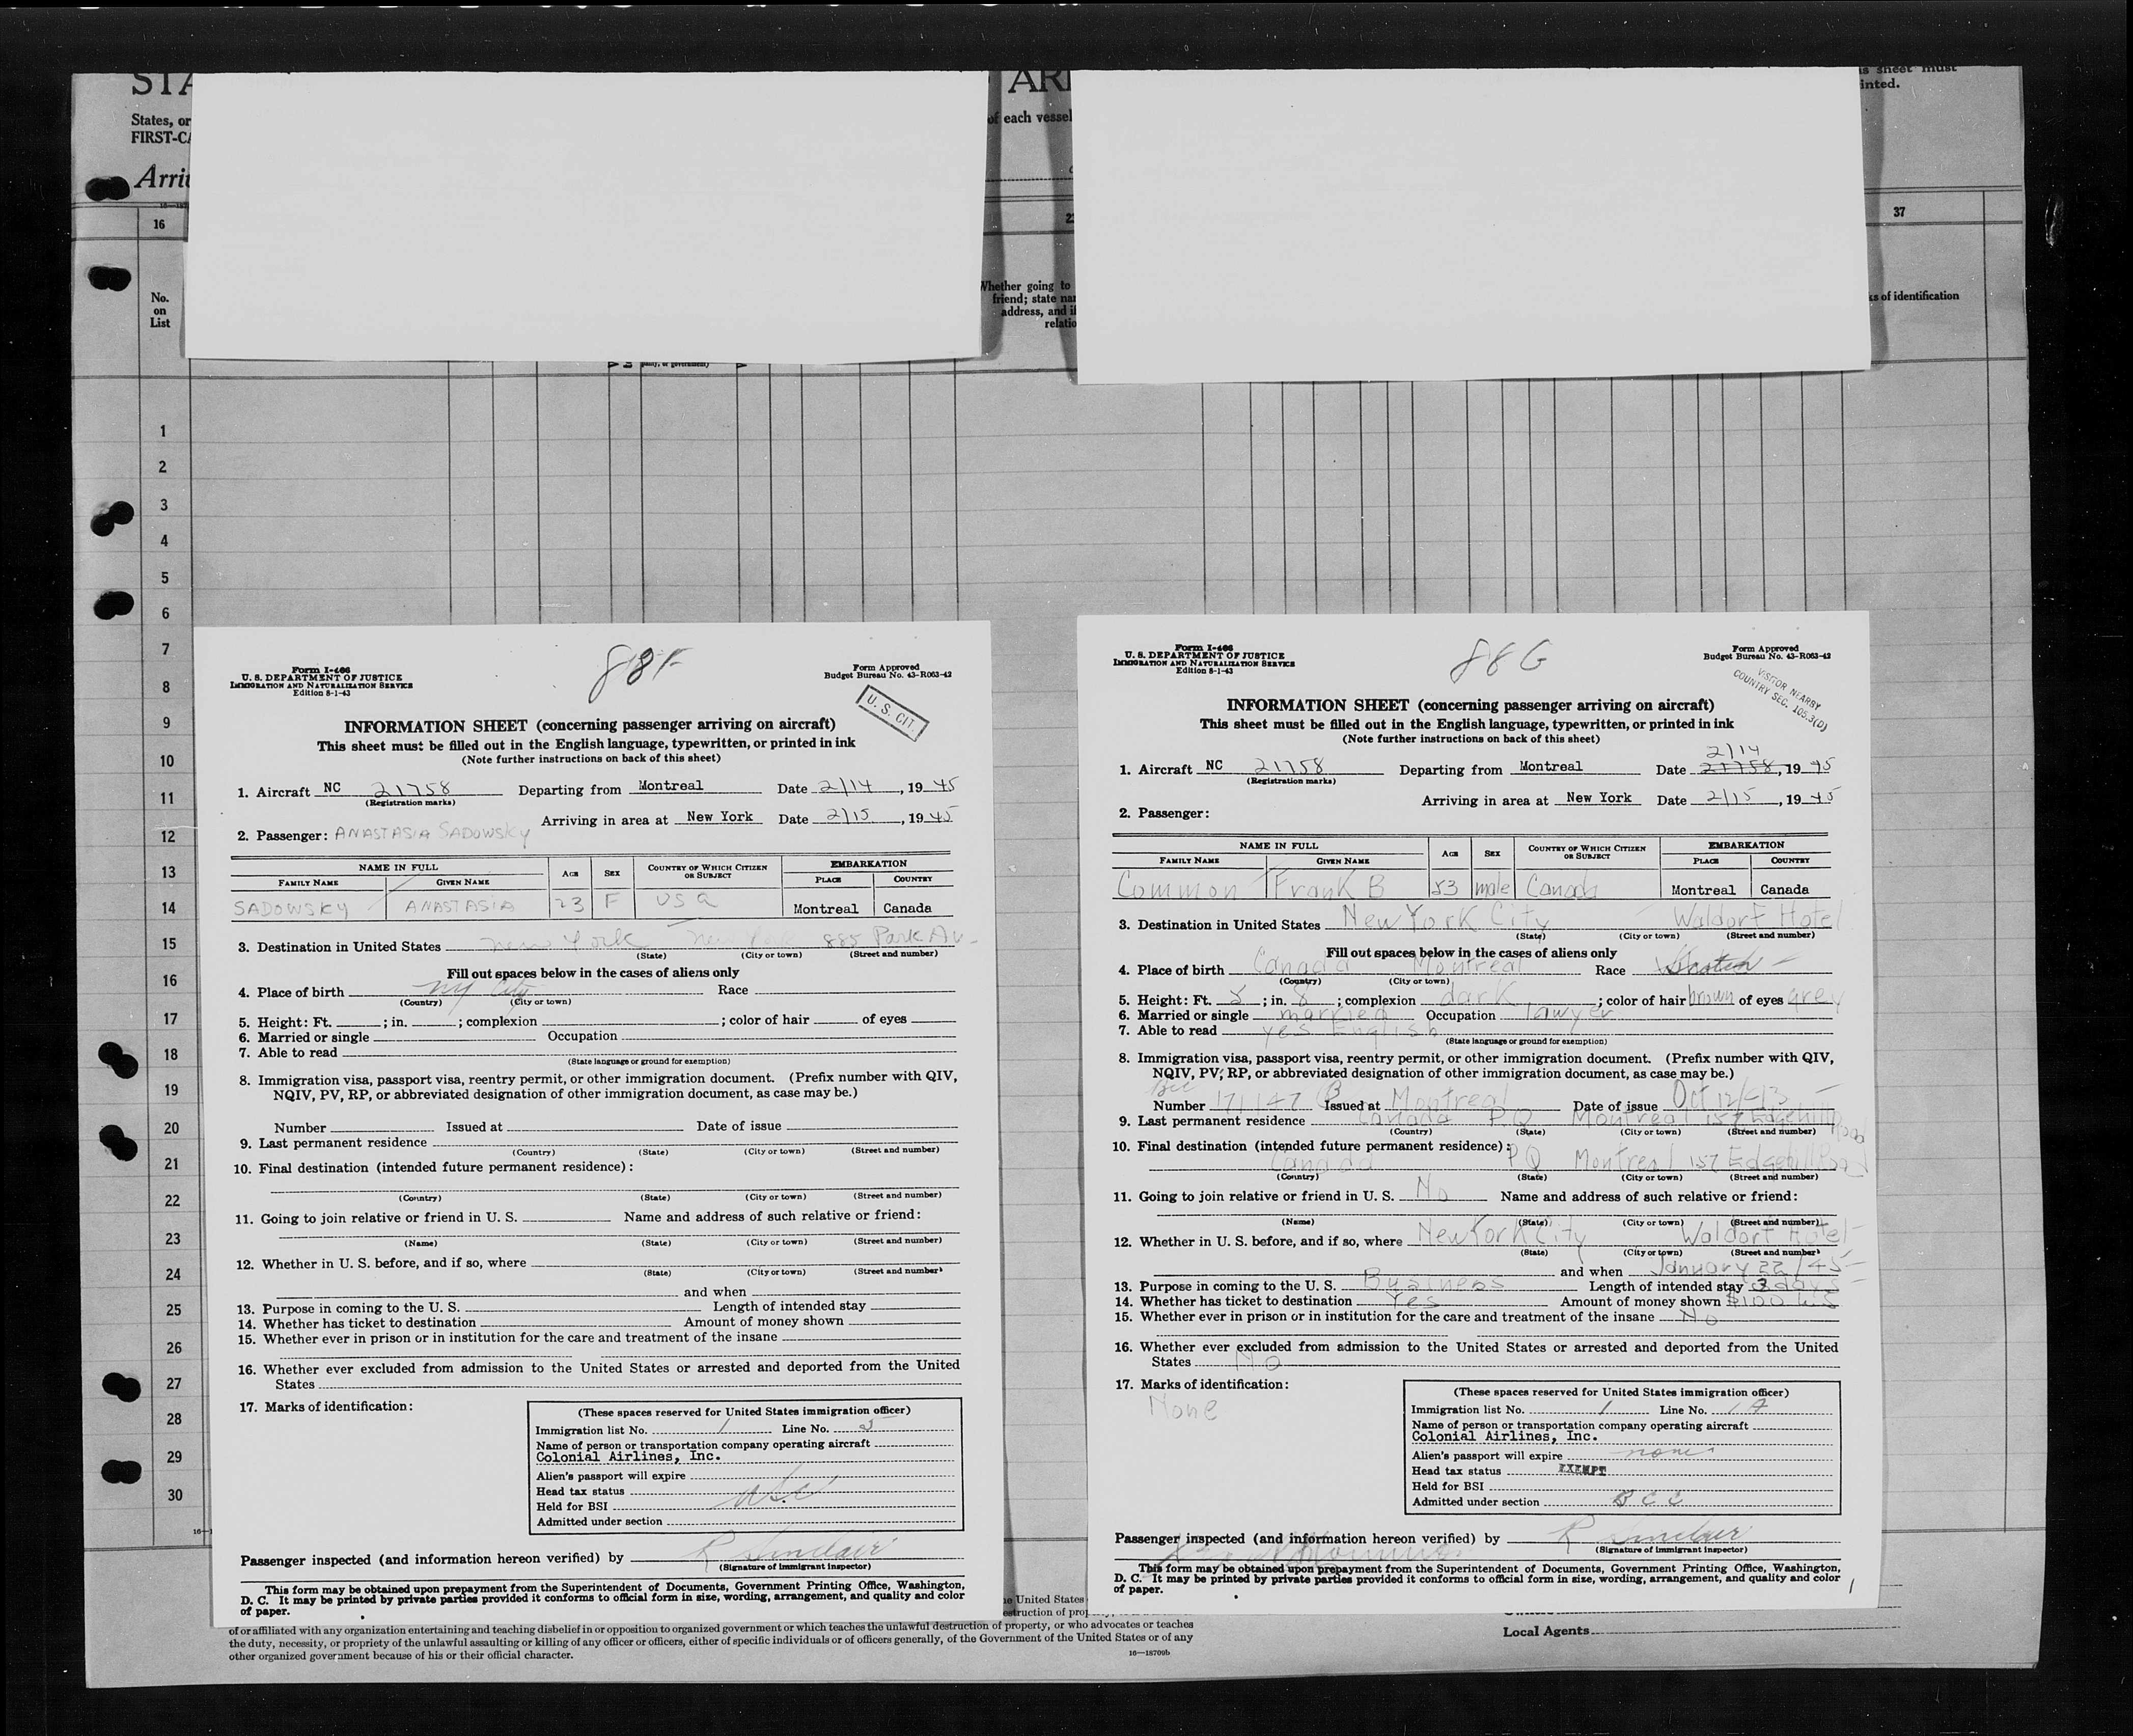 STA
ARI
s sheet must
inted.
States, or
of each vessel
FIRST-CA
Arri
16
37
No.
on
List
Whether going to
friend; state na
address, and if
relatio
ks of identification
1
2
3
4
5
6
7
8
9
10
11
12
13
14
15
16
17
18
19
20
21
22
23
24
25
26
27
28
29
30
88F
Form I-466
U. S. DEPARTMENT OF JUSTICE
IMMIGRATION AND NATURALIZATION SERVICE
Edition 8-1-43
Form Approved
Budget Bureau No. 43-R063-42
U. S. CIT.
INFORMATION SHEET (concerning passenger arriving on aircraft)
This sheet must be filled out in the English language, typewritten, or printed in ink
(Note further instructions on back of this sheet)
1. Aircraft NC 21758 Departing from Montreal Date 2/14, 19 45
(Registration marks)
Arriving in area at New York Date 2/15, 19 45
2. Passenger: ANASTASIA SADOWSKY
NAME IN FULL AGE SEX COUNTRY OF WHICH CITIZEN OR SUBJECT EMBARKATION
FAMILY NAME GIVEN NAME PLACE COUNTRY
SADOWSKY ANASTASIA 23 F USA Montreal Canada
3. Destination in United States New York New York 885 Park Av
(State) (City or town) (Street and number)
Fill out spaces below in the cases of aliens only
4. Place of birth NY City Race
(Country) (City or town)
5. Height: Ft. ; in. ; complexion ; color of hair of eyes
6. Married or single Occupation
7. Able to read
(State language or ground for exemption)
8. Immigration visa, passport visa, reentry permit, or other immigration document. (Prefix number with QIV,
NQIV, PV, RP, or abbreviated designation of other immigration document, as case may be.)
Number Issued at Date of issue
9. Last permanent residence
(Country) (State) (City or town) (Street and number)
10. Final destination (intended future permanent residence):
(Country) (State) (City or town) (Street and number)
11. Going to join relative or friend in U. S. Name and address of such relative or friend:
(Name) (State) (City or town) (Street and number)
12. Whether in U. S. before, and if so, where
(State) (City or town) (Street and number)
and when
13. Purpose in coming to the U. S. Length of intended stay
14. Whether has ticket to destination Amount of money shown
15. Whether ever in prison or in institution for the care and treatment of the insane
16. Whether ever excluded from admission to the United States or arrested and deported from the United
States
17. Marks of identification:
(These spaces reserved for United States immigration officer)
Immigration list No. 1 Line No. 5
Name of person or transportation company operating aircraft
Colonial Airlines, Inc.
Alien's passport will expire
Head tax status
Held for BSI USC
Admitted under section
Passenger inspected (and information hereon verified) by R Sinclair
(Signature of immigrant inspector)
This form may be obtained upon prepayment from the Superintendent of Documents, Government Printing Office, Washington,
D. C. It may be printed by private parties provided it conforms to official form in size, wording, arrangement, and quality and color
of paper.
88G
Form I-466
U. S. DEPARTMENT OF JUSTICE
IMMIGRATION AND NATURALIZATION SERVICE
Edition 8-1-43
Form Approved
Budget Bureau No. 43-R063-42
VISITOR NEARBY
COUNTRY SEC. 105.3(D)
INFORMATION SHEET (concerning passenger arriving on aircraft)
This sheet must be filled out in the English language, typewritten, or printed in ink
(Note further instructions on back of this sheet)
2/14
1. Aircraft NC 21758 Departing from Montreal Date 21758, 19 45
(Registration marks)
Arriving in area at New York Date 2/15, 19 45
2. Passenger:
NAME IN FULL AGE SEX COUNTRY OF WHICH CITIZEN OR SUBJECT EMBARKATION
FAMILY NAME GIVEN NAME PLACE COUNTRY
Common Frank B 53 male Canada Montreal Canada
3. Destination in United States New York City Waldorf Hotel
(State) (City or town) (Street and number)
Fill out spaces below in the cases of aliens only
4. Place of birth Canada Montreal Race
(Country) (City or town)
5. Height: Ft. 5; in. 8; complexion dark; color of hair brown of eyes grey
6. Married or single married Occupation lawyer
7. Able to read yes English
(State language or ground for exemption)
8. Immigration visa, passport visa, reentry permit, or other immigration document. (Prefix number with QIV,
NQIV, PV, RP, or abbreviated designation of other immigration document, as case may be.)
Number 171147 Issued at Montreal Date of issue Oct 12/43
9. Last permanent residence Canada P.Q Montreal 157 Edgehill Road
(Country) (State) (City or town) (Street and number)
10. Final destination (intended future permanent residence):
Canada PQ Montreal 157 Edgehill Road
(Country) (State) (City or town) (Street and number)
11. Going to join relative or friend in U. S. No Name and address of such relative or friend:
(Name) (State) (City or town) (Street and number)
12. Whether in U. S. before, and if so, where New York City Waldorf Hotel
(State) (City or town) (Street and number)
and when January 22/45
13. Purpose in coming to the U. S. Business Length of intended stay 3 days
14. Whether has ticket to destination Yes Amount of money shown $100 US
15. Whether ever in prison or in institution for the care and treatment of the insane No
16. Whether ever excluded from admission to the United States or arrested and deported from the United
States No
17. Marks of identification:
None
(These spaces reserved for United States immigration officer)
Immigration list No. 1 Line No. 17
Name of person or transportation company operating aircraft
Colonial Airlines, Inc.
Alien's passport will expire none
Head tax status EXEMPT
Held for BSI
Admitted under section BCC
Passenger inspected (and information hereon verified) by R Sinclair
(Signature of immigrant inspector)
This form may be obtained upon prepayment from the Superintendent of Documents, Government Printing Office, Washington,
D. C. It may be printed by private parties provided it conforms to official form in size, wording, arrangement, and quality and color
of paper.
United States
estruction of prop
of or affiliated with any organization entertaining and teaching disbelief in or opposition to organized government or which teaches the unlawful destruction of property, or who advocates or teaches
the duty, necessity, or propriety of the unlawful assaulting or killing of any officer or officers, either of specific individuals or of officers generally, of the Government of the United States or of any
other organized government because of his or their official character.
16—18709b
Local Agents